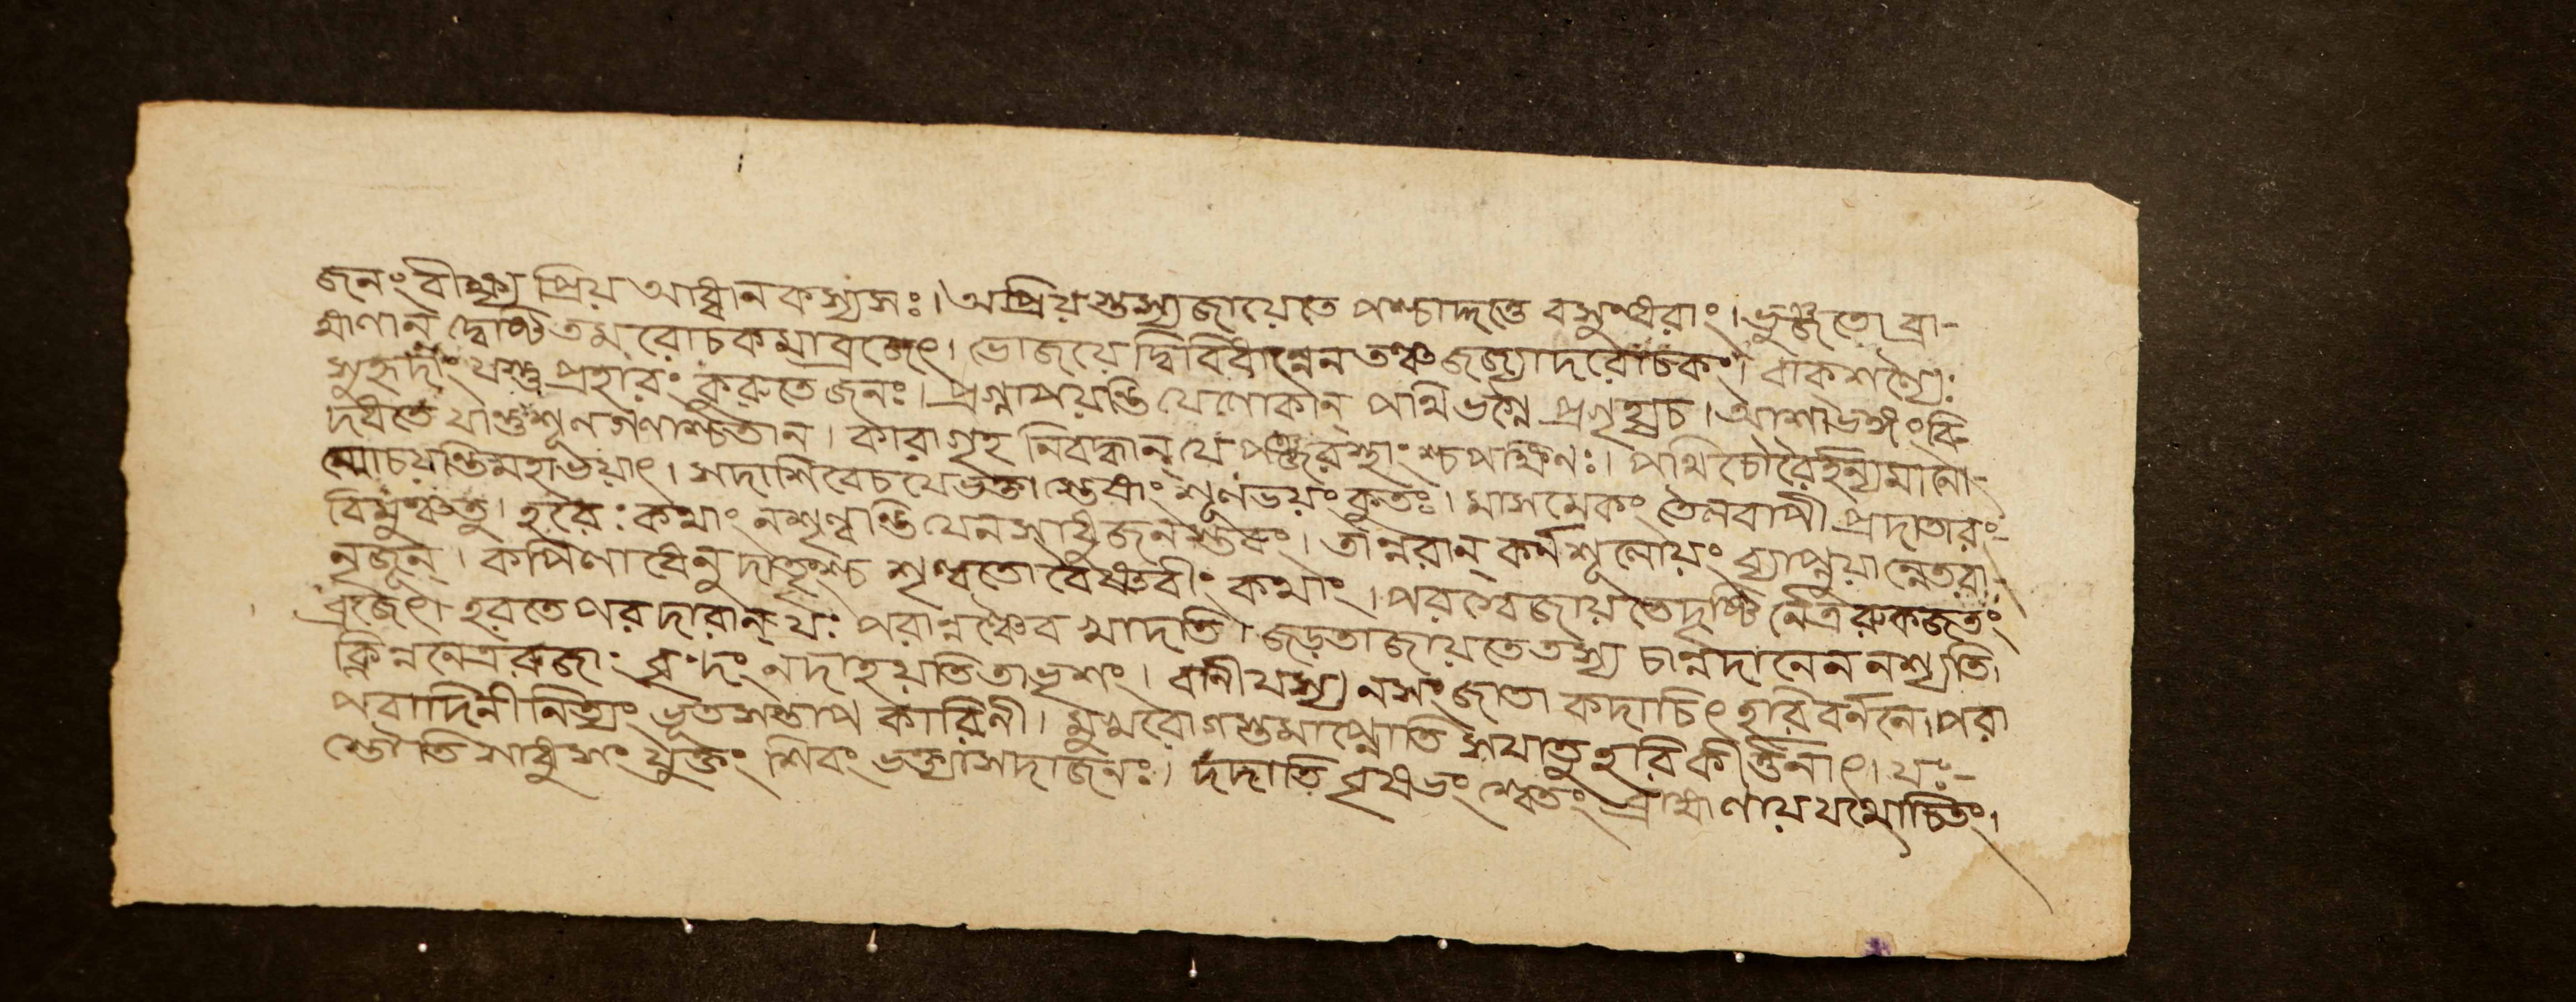 জনং বীক্ষ্য প্রিয় আধ্বান কস্যসঃ। অপ্রিয়স্তস্য জায়েতে পশ্চাদ্দত্তে বসুন্ধরাং। ভুঞ্জতো ব্রা-
হ্মাণান্ দ্বেষ্টি তম রোচকমাব্রজেৎ। ভোজয়ে দ্বিবিধান্নেন তঞ্চ জহ্যাদরোচকং। বাক্শল্যৈঃ
সুহৃদাং যস্তু প্রহারং কুরুতে জনঃ। প্রগ্লাপয়ন্তি যেলোকান্ পথি ভগ্নে প্রগৃহ্যচ। আশাভঙ্গং বি
দধতে যান্তুশূলগণাশ্চতান্। কারাগৃহ নিবদ্ধান্ যে পঞ্জরস্থাং শ্চপক্ষিনঃ। পথি চৌরৈর্হন্যমানো
ন্মোচয়ন্তিমহাভয়াৎ। সদাশিবেচযেভক্তা স্তেষাং শূলভয়ং কুতঃ। মাসমেকং তৈলবাপী প্রদাতারং-
বিমুঞ্চতু। হরেঃ কথাং নশৃণ্বন্তি যেনসাধুজনস্তবং। তান্নরান্ কর্নশূলোয়ং ব্যাপ্নুয়ান্নেতরা
নৃজূন্। কপিলাধেনু দাতৃংশ্চ শৃণ্বতো বৈষ্ণবীং কথাং। পরস্বৈজায়তেদৃষ্টি র্নেত্ররুকজতং
ব্রজেৎ। হরতে পরদারান্ যঃ পরান্নঞ্চৈব খাদতি। জড়তাজায়তেতস্য চান্নদানেন নশ্যতি।
ক্লিন্ননেত্ররুজাং নদাহয়তিতাভৃশং। বানীযস্য নসংজাতা কদাচিৎ হরিবর্ননে। পরা
পবাদিনী নিত্যং ভূতসন্তাপ কারিনী। মুখরোগস্তমাপ্নোতি সযাতু হরিকীর্ত্তনাৎ। যঃ-
স্তৌতি সাধুসং যুক্তং শিবং ভক্ত্যাসদাজনঃ। দদাতি বৃষভং শ্বেতং ব্রাহ্মাণায় যথোচিতং।